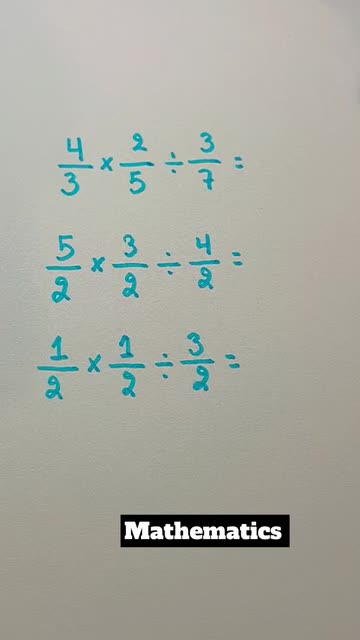 4/3 × 2/5 ÷ 3/7 =
5/2 × 3/2 ÷ 4/2 =
1/2 × 1/2 ÷ 3/2 =
Mathematics